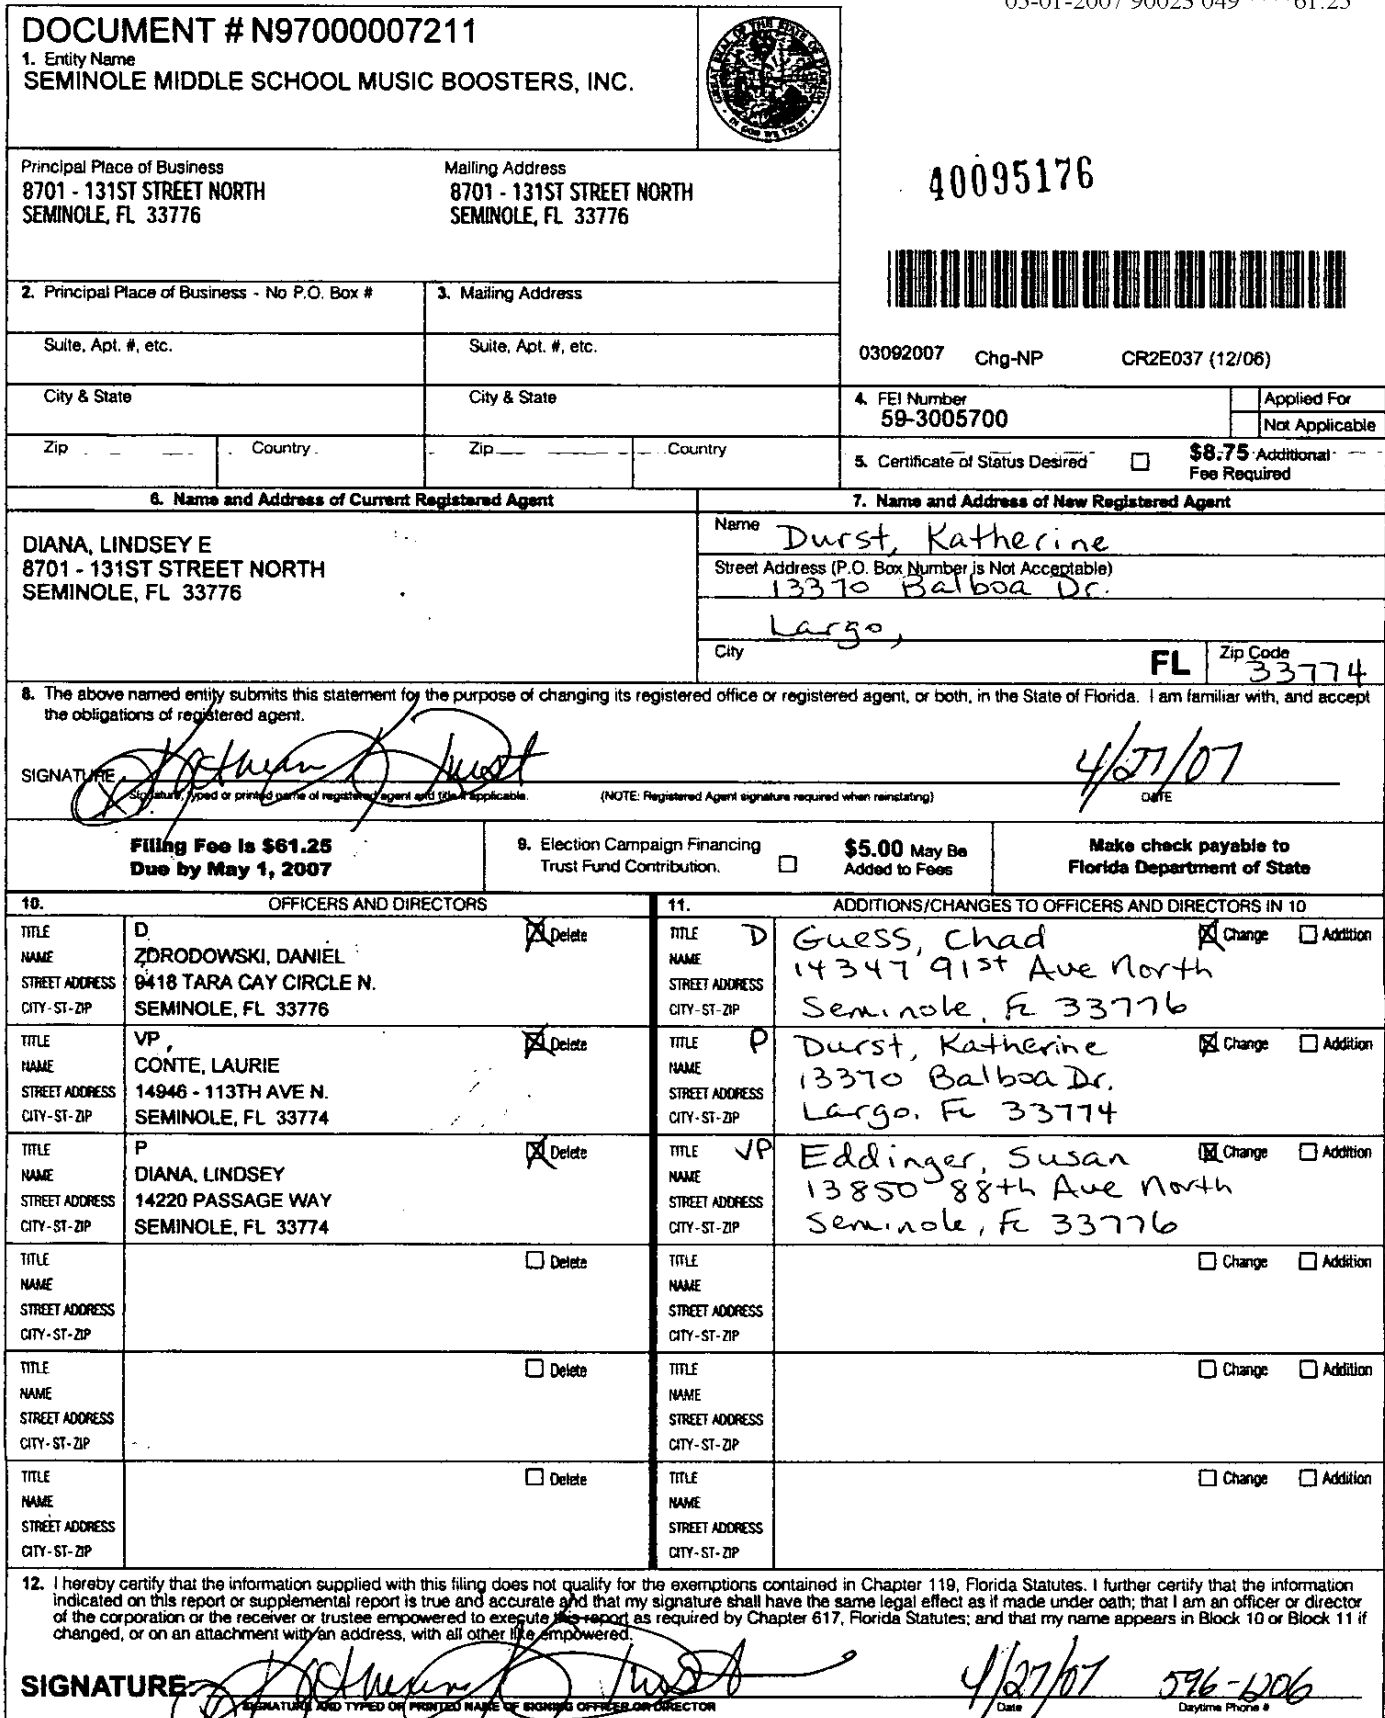 05-01-2007 90023 049 ****61.25
DOCUMENT # N97000007211
1. Entity Name
SEMINOLE MIDDLE SCHOOL MUSIC BOOSTERS, INC.
Principal Place of Business
8701 - 131ST STREET NORTH
SEMINOLE, FL 33776
Mailing Address
8701 - 131ST STREET NORTH
SEMINOLE, FL 33776
40095176
2. Principal Place of Business - No P.O. Box #
3. Mailing Address
Suite, Apt. #, etc.
Suite, Apt. #, etc.
City & State
City & State
Zip
Country
Zip
Country
03092007 Chg-NP CR2E037 (12/06)
4. FEI Number
59-3005700
Applied For
Not Applicable
5. Certificate of Status Desired
$8.75 Additional
Fee Required
6. Name and Address of Current Registered Agent
DIANA, LINDSEY E
8701 - 131ST STREET NORTH
SEMINOLE, FL 33776
7. Name and Address of New Registered Agent
Name Durst, Katherine
Street Address (P.O. Box Number is Not Acceptable)
13370 Balboa Dr.
Largo,
City
FL
Zip Code
33774
8. The above named entity submits this statement for the purpose of changing its registered office or registered agent, or both, in the State of Florida. I am familiar with, and accept
the obligations of registered agent.
SIGNATURE Katherine Durst 4/27/07
Signature, typed or printed name of registered agent and title if applicable. (NOTE: Registered Agent signature required when reinstating) DATE
Filing Fee is $61.25
Due by May 1, 2007
9. Election Campaign Financing
Trust Fund Contribution.
$5.00 May Be
Added to Fees
Make check payable to
Florida Department of State
10. OFFICERS AND DIRECTORS
TITLE D Delete
NAME ZDRODOWSKI, DANIEL
STREET ADDRESS 9418 TARA CAY CIRCLE N.
CITY-ST-ZIP SEMINOLE, FL 33776
TITLE VP Delete
NAME CONTE, LAURIE
STREET ADDRESS 14946 - 113TH AVE N.
CITY-ST-ZIP SEMINOLE, FL 33774
TITLE P Delete
NAME DIANA, LINDSEY
STREET ADDRESS 14220 PASSAGE WAY
CITY-ST-ZIP SEMINOLE, FL 33774
TITLE Delete
NAME
STREET ADDRESS
CITY-ST-ZIP
TITLE Delete
NAME
STREET ADDRESS
CITY-ST-ZIP
TITLE Delete
NAME
STREET ADDRESS
CITY-ST-ZIP
11. ADDITIONS/CHANGES TO OFFICERS AND DIRECTORS IN 10
TITLE D Guess, Chad Change Addition
NAME 14347 91st Ave North
STREET ADDRESS
CITY-ST-ZIP Seminole, FL 33776
TITLE P Durst, Katherine Change Addition
NAME 13370 Balboa Dr.
STREET ADDRESS
CITY-ST-ZIP Largo, FL 33774
TITLE VP Eddinger, Susan Change Addition
NAME 13850 88th Ave North
STREET ADDRESS
CITY-ST-ZIP Seminole, FL 33776
TITLE Change Addition
NAME
STREET ADDRESS
CITY-ST-ZIP
TITLE Change Addition
NAME
STREET ADDRESS
CITY-ST-ZIP
TITLE Change Addition
NAME
STREET ADDRESS
CITY-ST-ZIP
12. I hereby certify that the information supplied with this filing does not qualify for the exemptions contained in Chapter 119, Florida Statutes. I further certify that the information
indicated on this report or supplemental report is true and accurate and that my signature shall have the same legal effect as if made under oath; that I am an officer or director
of the corporation or the receiver or trustee empowered to execute this report as required by Chapter 617, Florida Statutes; and that my name appears in Block 10 or Block 11 if
changed, or on an attachment with an address, with all other like empowered.
SIGNATURE: Katherine Durst 4/27/07 596-1206
SIGNATURE AND TYPED OR PRINTED NAME OF SIGNING OFFICER OR DIRECTOR Date Daytime Phone #